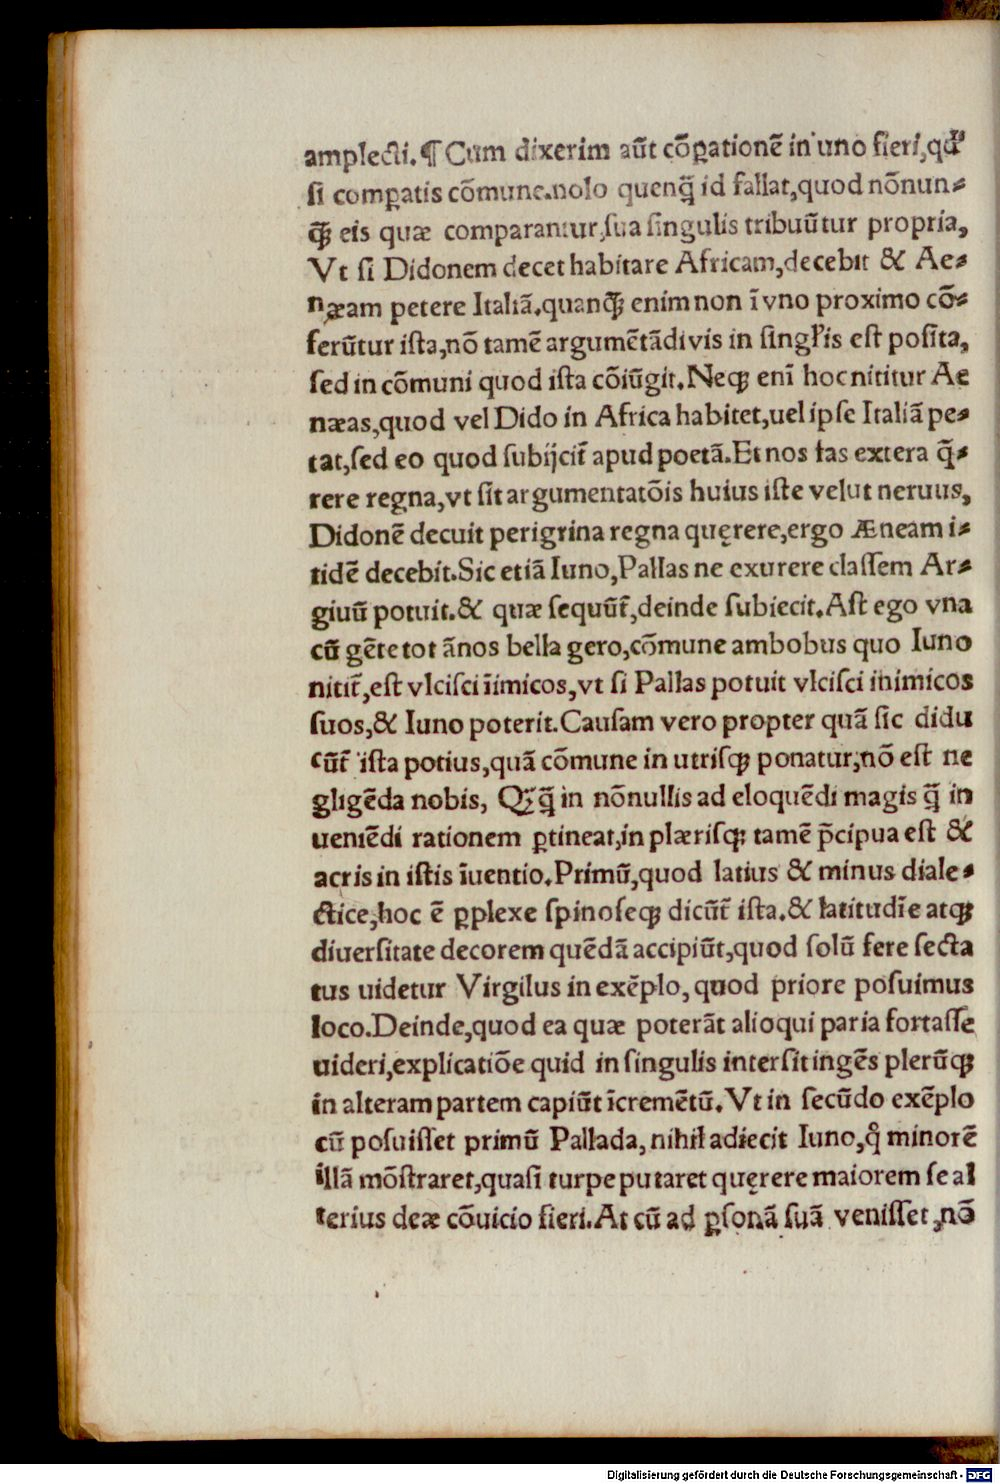 amplecti.¶ Cum dixerim aūt cōꝑationē in uno fieri,qđ
ſi comꝑatis cōmune.nolo quenq̄ id fallat,quod nōnun⸗
ꝗ̄ eis quæ comparantur,ſua ſingulis tribuūtur propria,
Vt ſi Didonem decet habitare Africam,decebit & Ae⸗
næam petere Italiā.quanꝗ̄ enim non ī vno proximo cō⸗
ferūtur iſta,nō tamē argumētādi vis in ſingľis eſt poſita,
ſed in cōmuni quod iſta cōiūgit.Neqꝫ enī hoc nititur Ae
næas,quod vel Dido in Africa habitet,uel ipſe Italiā pe⸗
tat,ſed eo quod ſubijcit̄ apud poetā.Et nos fas extera q̄⸗
rere regna,vt ſit argumentatōis huius iſte velut neruus,
Didonē decuit perigrina regna quęrere,ergo Æneam i⸗
tidē decebit.Sic etiā Iuno,Pallas ne exurere claſſem Ar⸗
giuū potuit.& quæ ſequūt̄,deinde ſubiecit.Aſt ego vna
cū gēte tot ānos bella gero,cōmune ambobus quo Iuno
nitit̄,eſt vlciſci īimicos,vt ſi Pallas potuit vlciſci inimicos
ſuos,& Iuno poterit.Cauſam vero propter quā ſic didu
cūt̄ iſta potius,quā cōmune in utriſqꝫ ponatur,nō eſt ne
gligēda nobis, Qꝫq̄ in nōnullis ad eloquēdi magis q̄ in
ueniēdi rationem ꝑtineat,in plæriſqꝫ tamē p̄cipua eſt &
acris in iſtis īuentio.Primū,quod latius & minus diale⸗
ctice,hoc ē ꝑplexe ſpinoſeqꝫ dicūt̄ iſta.& latitudīe atqꝫ
diuerſitate decorem quēdā accipiūt,quod ſolū fere ſecta
tus uidetur Virgilus in exēplo, quod priore poſuimus
loco.Deinde,quod ea quæ poterāt alioqui paria fortaſſe
uideri,explicatiōe quid in ſingulis interſit ingēs plerūqꝫ
in alteram partem capiūt īcremētū.Vt in ſecūdo exēplo
cū poſuiſſet primū Pallada, nihil adiecit Iuno,q̊ minorē
illā mōſtraret,quaſi turpe putaret quęrere maiorem ſe al
terius deæ cōuicio fieri.At cū ad ꝑſonā ſuā veniſſet,nō
Digitalisierung gefördert durch die Deutsche Forschungsgemeinschaft - DFG